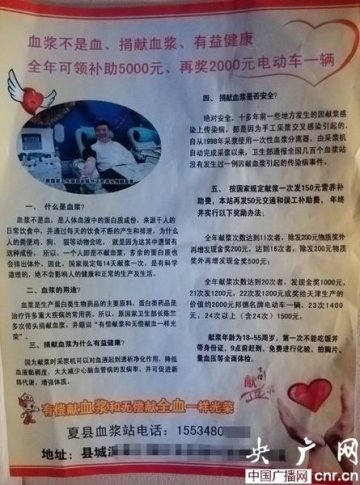 血浆不是血、捐献血浆、有益健康
全年可领补助5000元、再奖2000元电动车一辆
一、 什么是血浆?
血浆不是血、是人体血液中的蛋白质成份,来源于人的
日常饮食中,并通过每天的饮食不断的产生和排泄,为什么
人的粪便鸡、狗、猫等动物会吃,就是因为这其中遗留有
这种成份,所以,一个人即是不献血浆,多余的蛋白质也
会排出体外。因此,国家规定每14天献浆一次,是有科学
道理的,绝不会影响人的健康和正常的生产及生活。
二、 血浆的用途?
血浆是生产蛋白类生物药品的主要原料,蛋白类药品是
治疗许多重大疾病的常用药。所以,原国家卫生部长陈竺
多次带头捐献血浆,并题词“有偿献浆和无偿献血一样光
荣”。
三、捐献血浆为什么有益健康?
因为献浆时采浆机可以对血液起到透析净化作用,降低
血液黏稠度,大大减少心脑血管病的发病率,并可促进新
陈代谢,增强体质。
四、 捐献血浆是否安全?
绝对安全,十多年前一些地方发生的因献浆感
染上传染病,都是因为手工采浆交叉感染引起的,
自从1998年采浆使用一次性血浆分离器,由采浆机
自动完成采浆以来,卫生部通报全国几百个血浆站
没有发生过一例因献血浆引起的传染病事件。
五、 按国家规定献浆一次发150元营养补
助费,本站再发50元交通和误工补助费,年终
并实行以下奖励办法:
全年献浆次数达到11次者,除发200元物质奖
外再增发现金200元,达到16次者,除发200元物质
奖外再增发现金500元。
全年献浆次数达到20次者,发现金1000元,
21次发1200元,22次发1300元或奖给天津生产的
价值约2000元邦德名牌电动车一辆,23次1400
元,24次以上(含24次)1500元。
献浆年龄为18-55周岁,第一次不能吃饭并
带身份证,9点前赶到,免费进行化验、拍胸片、
量血压等全面体检。
献
有偿献血浆和无偿献全血一样光荣
夏县血浆站电话:1553480
地址:县城
央广网
中国广播网 cnr.cn